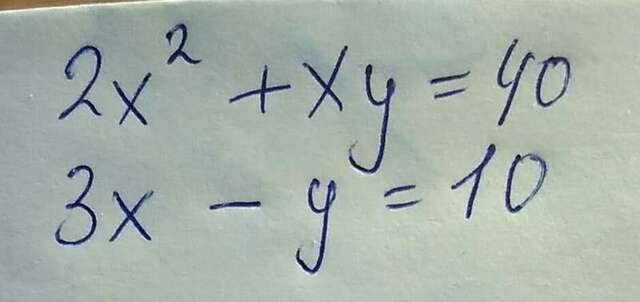 2x² + xy = 40
3x - y = 10